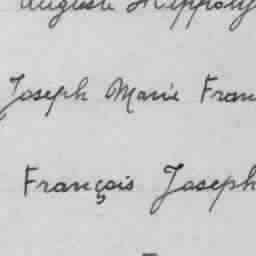 Auguste Hippoly
Joseph Marie Fran
François Joseph